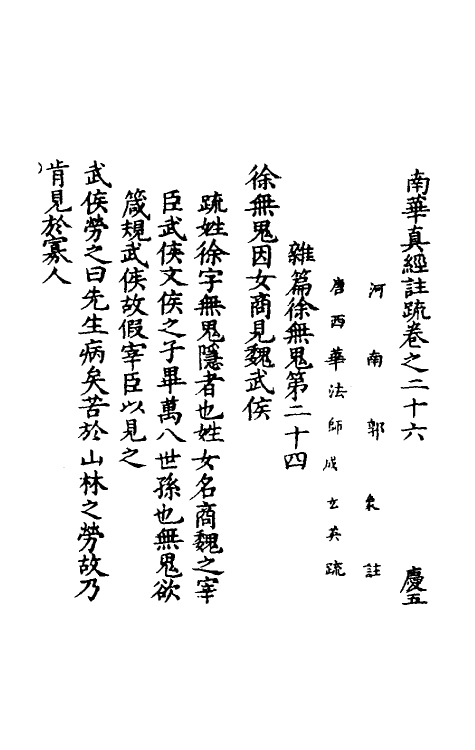 南華真經註疏卷之二十六 慶五
河南郭象註
唐西華法師成玄英疏
雜篇徐無鬼第二十四
徐無鬼因女商見魏武侯
疏姓徐字無鬼隱者也姓女名商魏之宰
臣武侯文侯之子畢萬八世孫也無鬼欲
箴規武侯故假宰臣以見之
武侯勞之曰先生病矣苦於山林之勞故乃
肯見於寡人